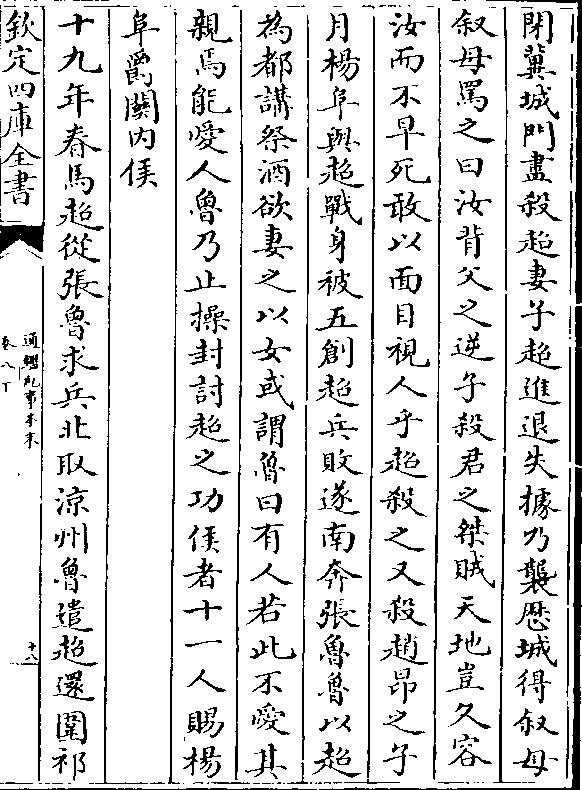 閉冀城門盡殺超妻子超進退失據乃襲歴城得叙母
叙母罵之曰汝背父之逆子殺君之桀賊天地豈久容
汝而不早死敢以面目視人乎超殺之又殺趙昂之子
月楊阜與超戰身被五創超兵敗遂南奔張魯魯以超
為都講祭酒欲妻之以女或謂魯曰有人若此不愛其
親焉能愛人魯乃止操封討超之功侯者十一人賜楊
阜爵關内侯
十九年春馬超從張魯求兵北取涼州魯遣超還圍祁
欽定四庫全書
通鑑紀事本末
卷八下
十八